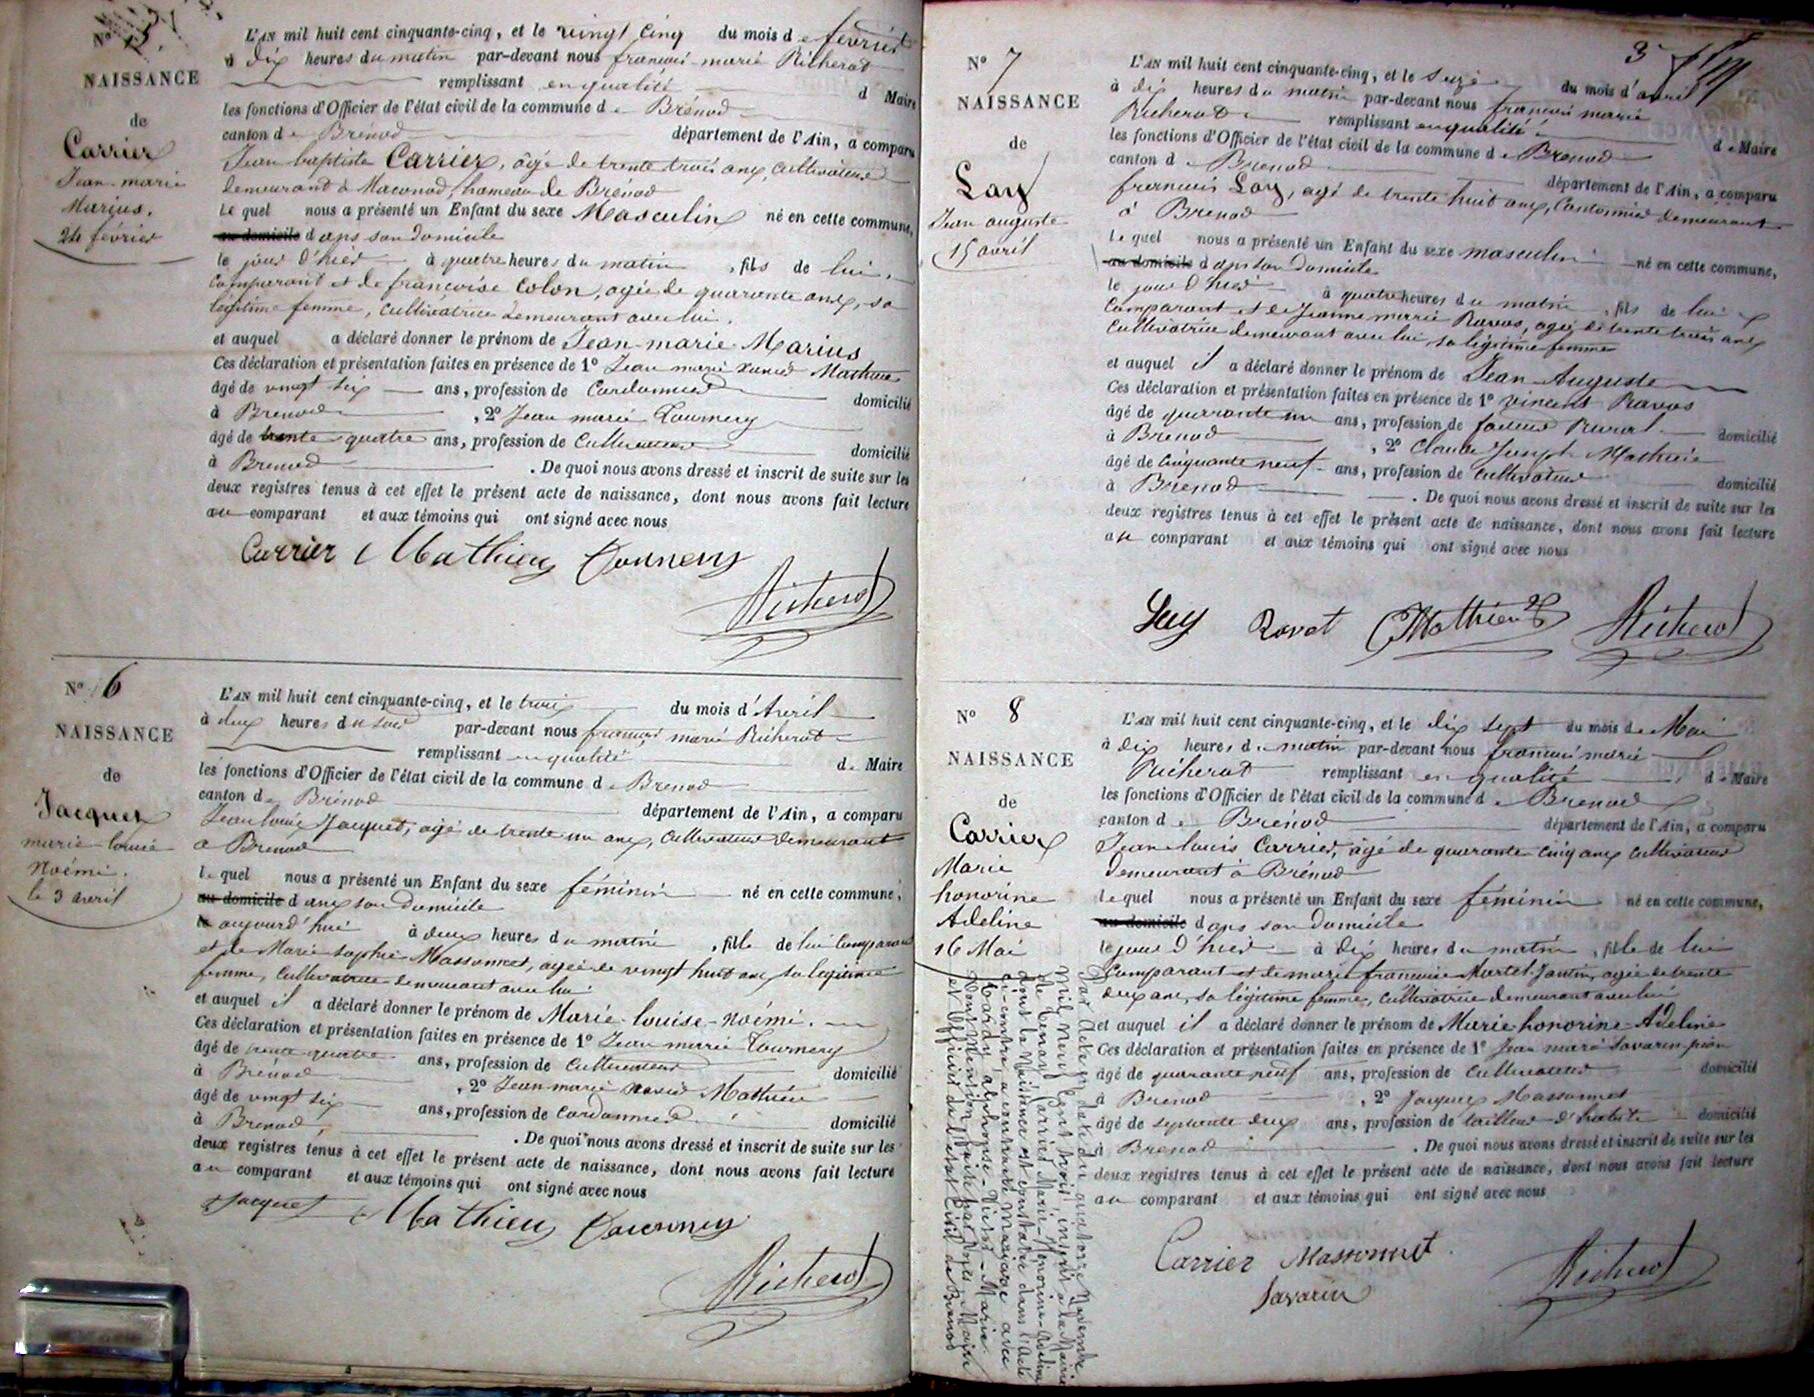 Nº 5
NAISSANCE
de
Carrier
Jean-marie
Marius.
24 février
L'AN mil huit cent cinquante-cinq, et le vingt cinq du mois de février
à dix heures du matin par-devant nous françois-marie Richerot
remplissant en qualité de Maire
les fonctions d'Officier de l'état civil de la commune de Brénod
canton de Brenod département de l'Ain, a comparu
Jean baptiste Carrier, âgé de trente trois ans, cultivateur
demeurant à Maconod, hameau de Brénod
Le quel nous a présenté un Enfant du sexe Masculin né en cette commune,
au domicile dans son domicile
le jour d'hier à quatre heures du matin, fils de lui
comparant et de françoise Colon, agée de quarante ans, sa
légitime femme, cultivatrice demeurant avec lui.
et auquel a déclaré donner le prénom de Jean-marie Marius
Ces déclaration et présentation faites en présence de 1º Jean marie Mathieu
âgé de vingt six ans, profession de Cordonnier domicilié
à Brenod, 2º Jean marie Tournery
âgé de trente quatre ans, profession de Cultivateur domicilié
à Brenod. De quoi nous avons dressé et inscrit de suite sur les
deux registres tenus à cet effet le présent acte de naissance, dont nous avons fait lecture
au comparant et aux témoins qui ont signé avec nous
Carrier Mathieu Tournery
Richerot
Nº 6
NAISSANCE
de
Jacquet
marie-louise
Noémi.
le 3 avril
L'AN mil huit cent cinquante-cinq, et le trois du mois d'Avril
à deux heures du soir par-devant nous françois marie Richerot
remplissant en qualité de Maire
les fonctions d'Officier de l'état civil de la commune de Brenod
canton de Brénod département de l'Ain, a comparu
Jean louis Jacquet, agé de trente un ans, cultivateur demeurant
a Brenod
le quel nous a présenté un Enfant du sexe féminin né en cette commune,
au domicile dans son domicile
le aujourd'hui à deux heures du matin, fille de lui comparant
et de Marie sophie Massonnet, agée de vingt huit ans sa légitime
femme, cultivatrice demeurant avec lui
et auquel il a déclaré donner le prénom de Marie-louise-noémi.
Ces déclaration et présentation faites en présence de 1º Jean marie Tournery
âgé de trente quatre ans, profession de Cultivateur domicilié
à Brenod, 2º Jean-marie Mathieu
âgé de vingt six ans, profession de Cordonnier domicilié
à Brenod. De quoi nous avons dressé et inscrit de suite sur les
deux registres tenus à cet effet le présent acte de naissance, dont nous avons fait lecture
au comparant et aux témoins qui ont signé avec nous
Jacquet Mathieu Tournery
Richerot
3
Nº 7
NAISSANCE
de
Lay
Jean auguste
15 avril
L'AN mil huit cent cinquante-cinq, et le seize du mois d'avril
à dix heures du matin par-devant nous françois marie
Richerot remplissant en qualité de Maire
les fonctions d'Officier de l'état civil de la commune de Brenod
canton de Brenod département de l'Ain, a comparu
françois Lay, agé de trente huit ans, Cantonnier demeurant
à Brenod
le quel nous a présenté un Enfant du sexe masculin né en cette commune,
au domicile dans son domicile
le jour d'hier à quatre heures du matin, fils de lui
comparant et de Jeanne marie Ravot, agée de trente trois ans
cultivatrice demeurant avec lui, sa légitime femme
et auquel il a déclaré donner le prénom de Jean Auguste
Ces déclaration et présentation faites en présence de 1º vincent Ravot
âgé de quarante un ans, profession de facteur Rural domicilié
à Brenod, 2º Claude Joseph Mathieu
âgé de cinquante neuf ans, profession de cultivateur domicilié
à Brenod. De quoi nous avons dressé et inscrit de suite sur les
deux registres tenus à cet effet le présent acte de naissance, dont nous avons fait lecture
au comparant et aux témoins qui ont signé avec nous
Ravot Mathieu Richerot
Nº 8
NAISSANCE
de
Carrier
Marie
honorine
Adeline
16 Mai
L'AN mil huit cent cinquante-cinq, et le dix sept du mois de Mai
à dix heures du matin par-devant nous françois marie
Richerot remplissant en qualité de Maire
les fonctions d'Officier de l'état civil de la commune de Brenod
canton de Brénod département de l'Ain, a comparu
Jean-louis Carrier, âgé de quarante cinq ans cultivateur
demeurant à Brénod
lequel nous a présenté un Enfant du sexe féminin né en cette commune,
au domicile dans son domicile
le jour d'hier à dix heures du matin, fille de lui
comparant et de marie françoise Martel-Jantin, agée de trente
deux ans, sa légitime femme, cultivatrice demeurant avec lui
et auquel il a déclaré donner le prénom de Marie honorine Adeline
Ces déclaration et présentation faites en présence de 1º Jean marie Savarin pion
âgé de quarante neuf ans, profession de Cultivateur domicilié
à Brenod, 2º Jacques Massonnet
âgé de septante deux ans, profession de tailleur d'habits domicilié
à Brenod. De quoi nous avons dressé et inscrit de suite sur les
deux registres tenus à cet effet le présent acte de naissance, dont nous avons fait lecture
au comparant et aux témoins qui ont signé avec nous
Carrier Massonnet
Savarin
Richerot
Par Acte en date du quatorze Novembre
Mil neuf cent trois, inscrit à la Mairie
de Cenans Carrier Marie-Honorine-Adeline
dont la Naissance est constatée dans l'acte
ci-contre, a contracté mariage avec
alphonse-Victor-Marie
Dont mention faite par Nous Maire
et Officier de l'état Civil de Brenod